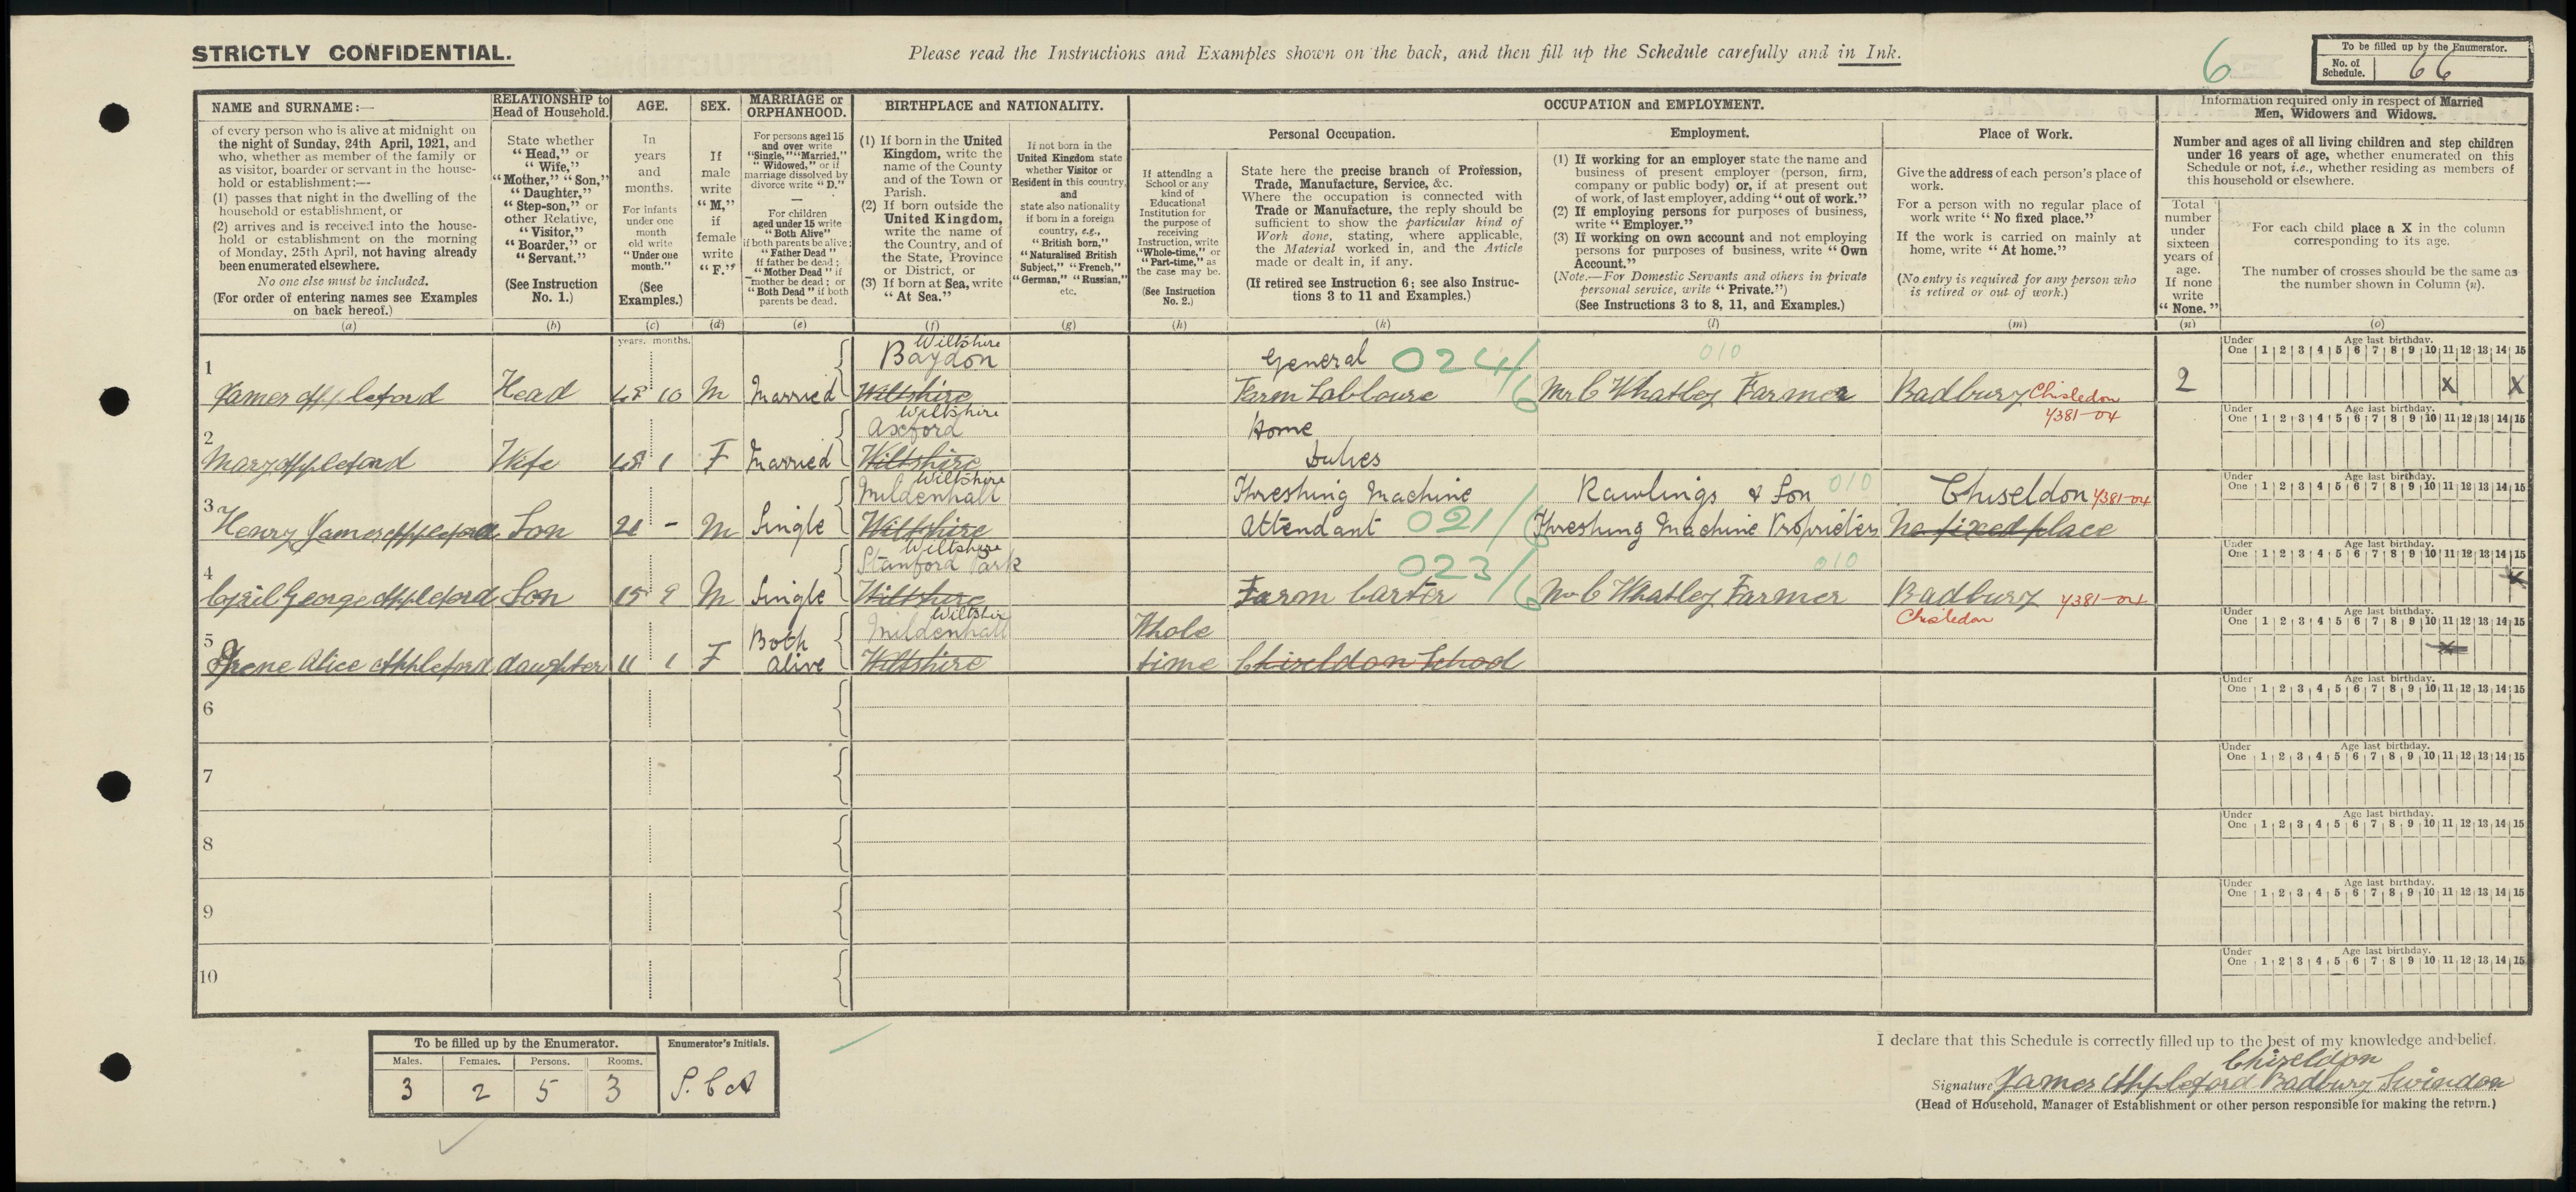 STRICTLY CONFIDENTIAL.
Please read the Instructions and Examples shown on the back, and then fill up the Schedule carefully and in Ink.
6
To be filled up by the Enumerator.
No. of Schedule. 66
NAME and SURNAME:—
of every person who is alive at midnight on
the night of Sunday, 24th April, 1921, and
who, whether as member of the family or
as visitor, boarder or servant in the house-
hold or establishment:—
(1) passes that night in the dwelling of the
household or establishment, or
(2) arrives and is received into the house-
hold or establishment on the morning
of Monday, 25th April, not having already
been enumerated elsewhere.
No one else must be included.
(For order of entering names see Examples
on back hereof.)
(a)
RELATIONSHIP to
Head of Household.
State whether
"Head," or
"Wife,"
"Mother," "Son,"
"Daughter,"
"Step-son," or
other Relative,
"Visitor,"
"Boarder," or
"Servant."
(See Instruction
No. 1.)
(b)
AGE.
In
years
and
months.
For infants
under one
month
old write
"Under one
month."
(See
Examples.)
(c)
SEX.
If
male
write
"M,"
if
female
write
"F."
(d)
MARRIAGE or
ORPHANHOOD.
For persons aged 15
and over write
"Single," "Married,"
"Widowed," or if
marriage dissolved by
divorce write "D."
—
For children
aged under 15 write
"Both Alive"
if both parents be alive;
"Father Dead"
if father be dead;
"Mother Dead" if
mother be dead; or
"Both Dead" if both
parents be dead.
(e)
BIRTHPLACE and NATIONALITY.
(1) If born in the United
Kingdom, write the
name of the County
and of the Town or
Parish.
(2) If born outside the
United Kingdom,
write the name of
the Country, and of
the State, Province
or District, or
(3) If born at Sea, write
"At Sea."
(f)
If not born in the
United Kingdom state
whether Visitor or
Resident in this country,
and
state also nationality
if born in a foreign
country, e.g.,
"British born,"
"Naturalised British
Subject," "French,"
"German," "Russian,"
etc.
(g)
OCCUPATION and EMPLOYMENT.
If attending a
School or any
kind of
Educational
Institution for
the purpose of
receiving
Instruction, write
"Whole-time," or
"Part-time," as
the case may be.
(See Instruction
No. 2.)
(h)
Personal Occupation.
State here the precise branch of Profession,
Trade, Manufacture, Service, &c.
Where the occupation is connected with
Trade or Manufacture, the reply should be
sufficient to show the particular kind of
Work done, stating, where applicable,
the Material worked in, and the Article
made or dealt in, if any.
(If retired see Instruction 6; see also Instruc-
tions 3 to 11 and Examples.)
(k)
Employment.
(1) If working for an employer state the name and
business of present employer (person, firm,
company or public body) or, if at present out
of work, of last employer, adding "out of work."
(2) If employing persons for purposes of business,
write "Employer."
(3) If working on own account and not employing
persons for purposes of business, write "Own
Account."
(Note.—For Domestic Servants and others in private
personal service, write "Private.")
(See Instructions 3 to 8, 11, and Examples.)
(l)
Place of Work.
Give the address of each person's place of
work.
For a person with no regular place of
work write "No fixed place."
If the work is carried on mainly at
home, write "At home."
(No entry is required for any person who
is retired or out of work.)
(m)
Information required only in respect of Married
Men, Widowers and Widows.
Number and ages of all living children and step children
under 16 years of age, whether enumerated on this
Schedule or not, i.e., whether residing as members of
this household or elsewhere.
Total
number
under
sixteen
years of
age.
If none
write
"None."
(n)
For each child place a X in the column
corresponding to its age.
The number of crosses should be the same as
the number shown in Column (n).
(o)
years. months.
Under One Age last birthday. 1 2 3 4 5 6 7 8 9 10 11 12 13 14 15
1 Wiltshire
Baydon General 024/6 010
James Appleford Head 48 10 M Married Wiltshire Farm Laboure Mr C Whatley Farmer Badbury Chisledon 2 X X
4381-04
Under One Age last birthday. 1 2 3 4 5 6 7 8 9 10 11 12 13 14 15
2 Wiltshire
Axford Home
Mary Appleford Wife 48 1 F Married Wiltshire Duties
Under One Age last birthday. 1 2 3 4 5 6 7 8 9 10 11 12 13 14 15
3 Wiltshire
Mildenhall Threshing Machine Rawlings & Son 010 Chiseldon 4381-04
Henry James Appleford Son 21 - M Single Wiltshire Attendant 021/6 Threshing Machine Proprieters No fixed place
Under One Age last birthday. 1 2 3 4 5 6 7 8 9 10 11 12 13 14 15
4 Wiltshire
Stanford Park 023/6 010
Cyril George Appleford Son 15 9 M Single Wiltshire Farm Carter Mr C Whatley Farmer Badbury 4381-04 X
Chisledon
Under One Age last birthday. 1 2 3 4 5 6 7 8 9 10 11 12 13 14 15
5 Wiltshire
Both Mildenhall Whole
Irene Alice Appleford daughter 11 1 F alive Wiltshire time Chiseldon School X
Under One Age last birthday. 1 2 3 4 5 6 7 8 9 10 11 12 13 14 15
6
Under One Age last birthday. 1 2 3 4 5 6 7 8 9 10 11 12 13 14 15
7
Under One Age last birthday. 1 2 3 4 5 6 7 8 9 10 11 12 13 14 15
8
Under One Age last birthday. 1 2 3 4 5 6 7 8 9 10 11 12 13 14 15
9
Under One Age last birthday. 1 2 3 4 5 6 7 8 9 10 11 12 13 14 15
10
To be filled up by the Enumerator.
Males. Females. Persons. Rooms.
3 2 5 3
Enumerator's Initials.
S.C.A
I declare that this Schedule is correctly filled up to the best of my knowledge and belief.
Chiseldon
Signature James Appleford Badbury Swindon
(Head of Household, Manager of Establishment or other person responsible for making the return.)